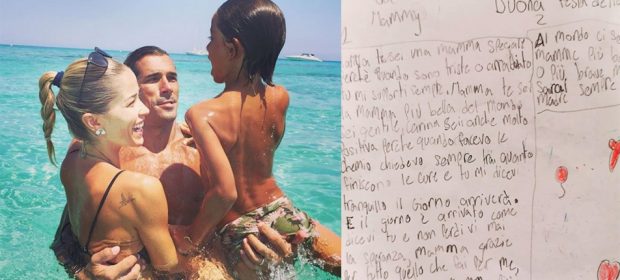 Mammy
Buona festa della
1
2
tu sei una mamma speciale
perché quando sono triste o arrabbiato
tu mi sopporti sempre. Mamma te sei
la mamma più bella del mondo
sei gentile, carina sei anche molto
positiva perché quando facevo le
chemio chiedevo sempre tra quanto
finiscono le cure e tu mi dicevi
tranquillo il giorno arriverà.
E il giorno è arrivato come
dicevi tu e non perdevi mai
la speranza mamma grazie
per tutto quello che fai per me
Al mondo ci so
mamme più b
o più brave m
sarai
madre sempre